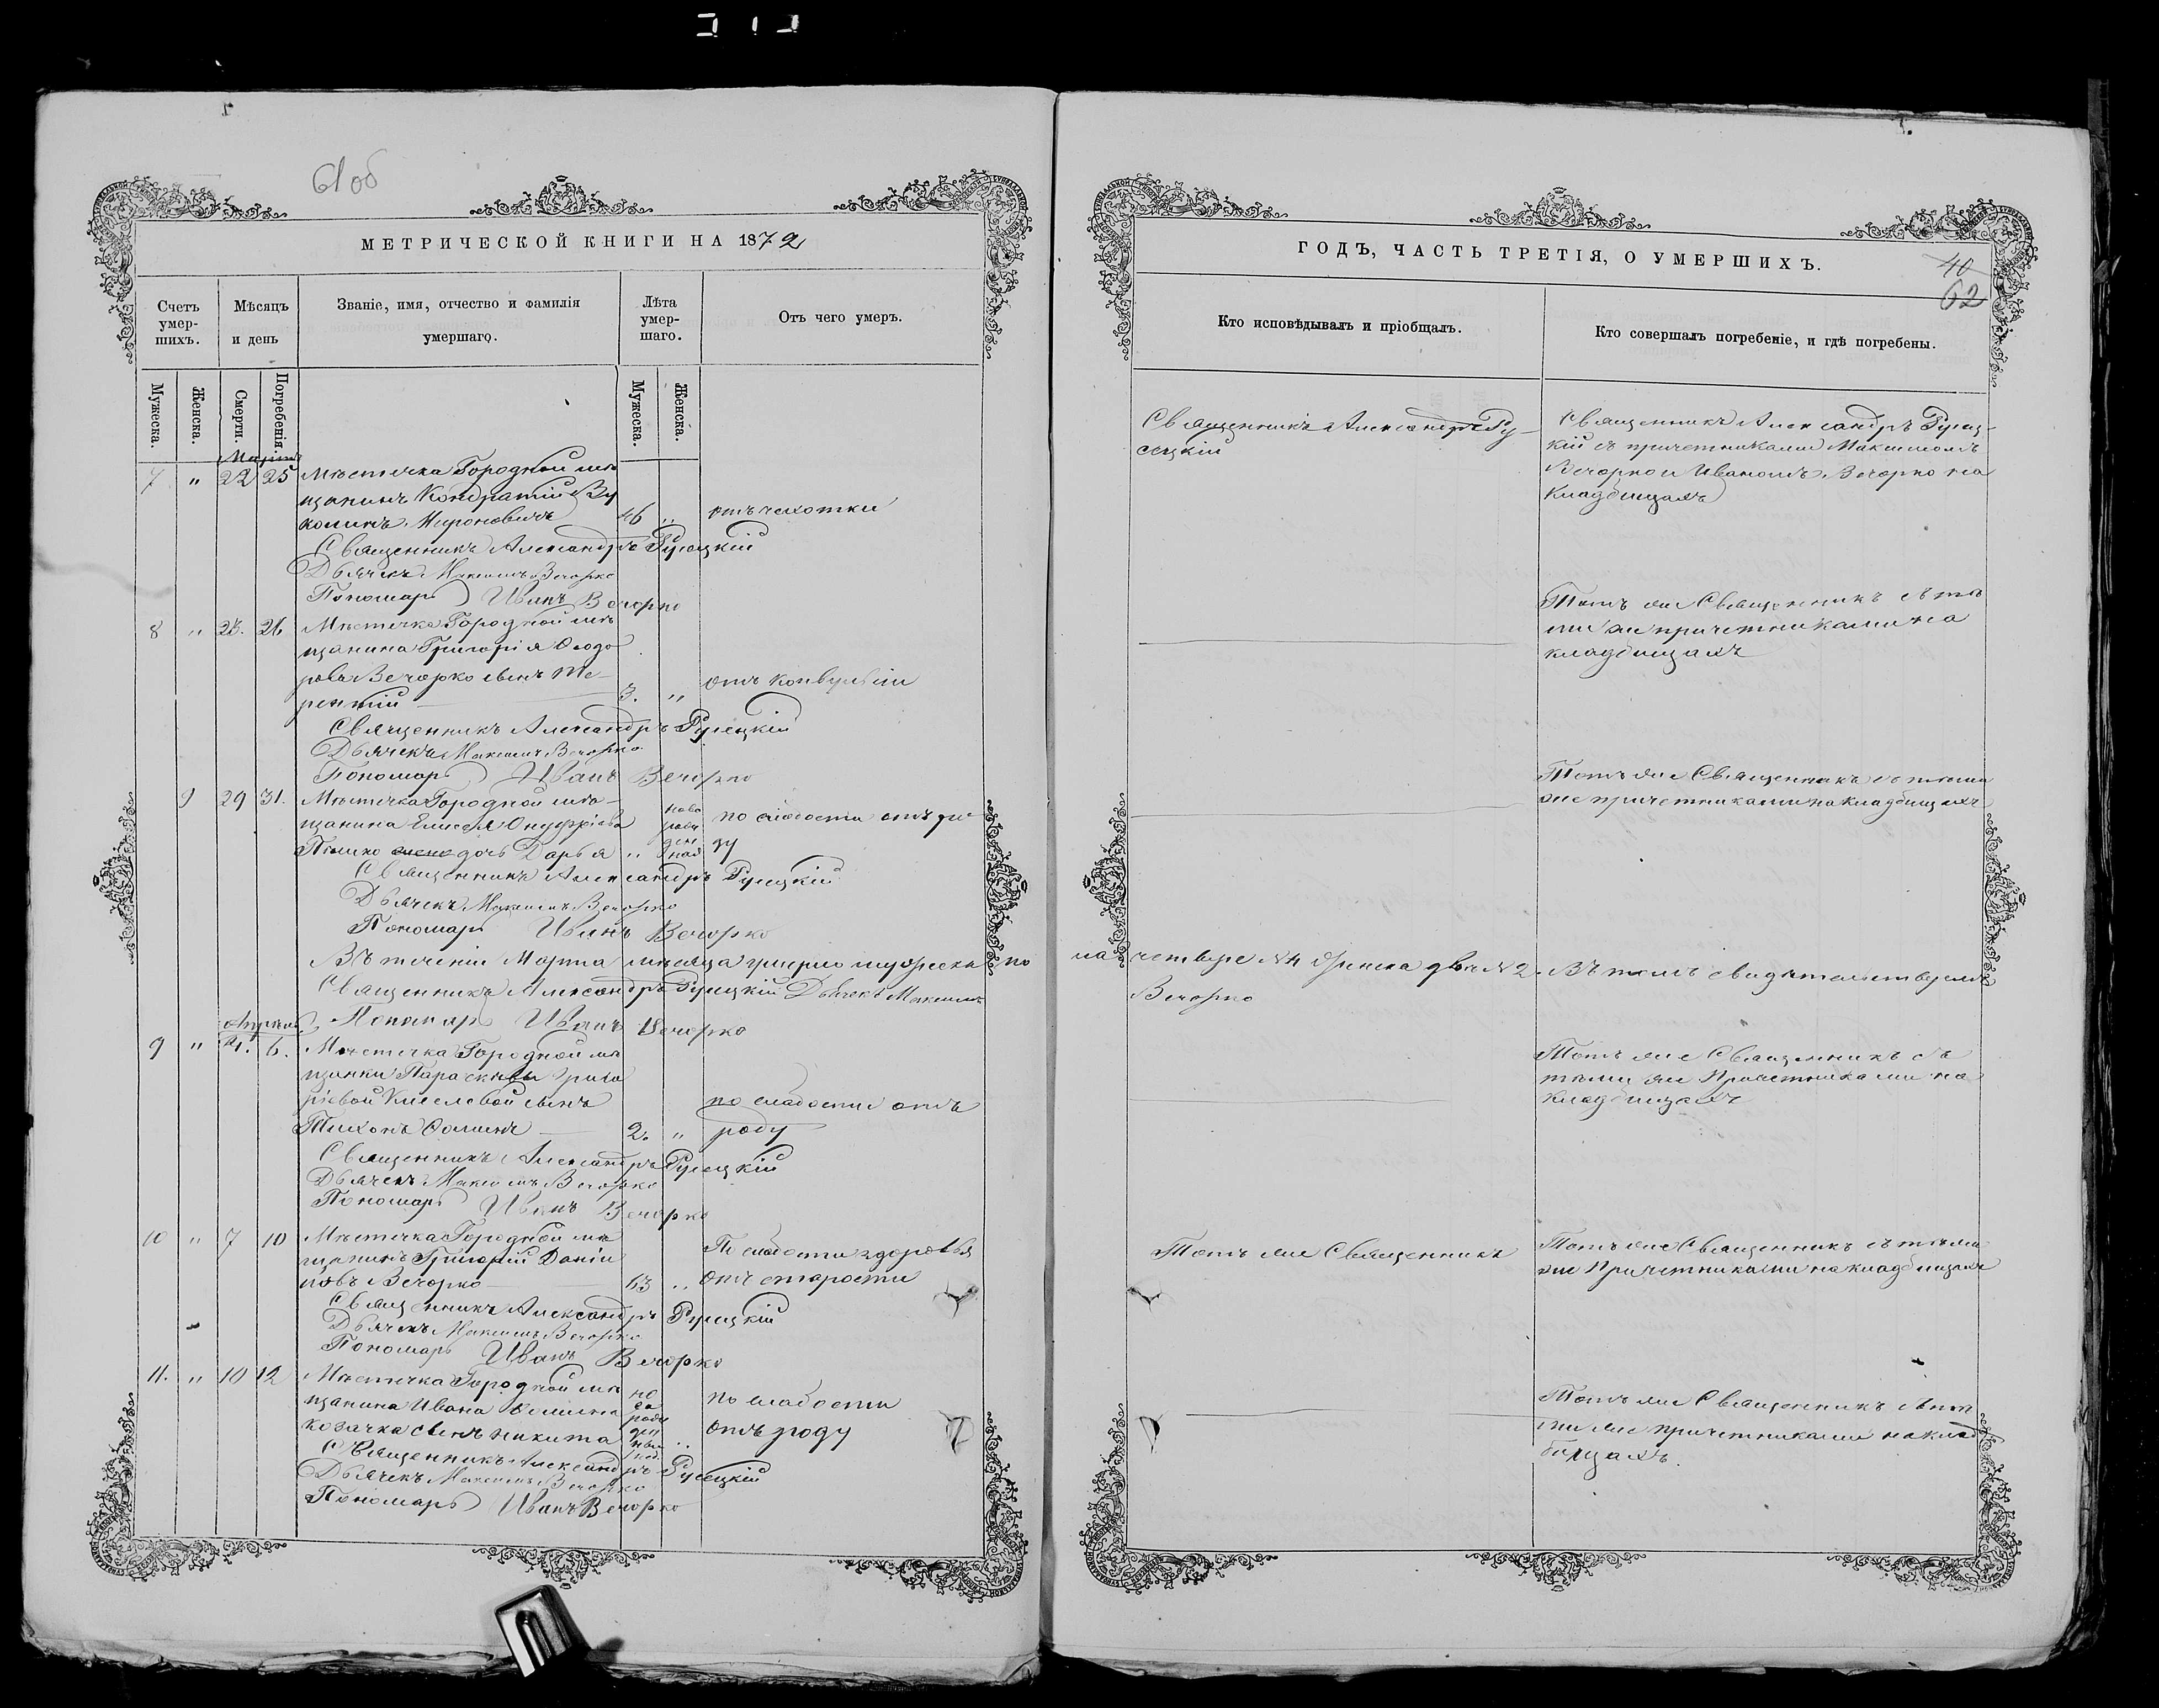 61 об
МЕТРИЧЕСКОЙ КНИГИ НА 1872
Счетъ умер-шихъ.
Мѣсяцъ и день
Званіе, имя, отчество и фамилія умершаго.
Лѣта умер-шаго.
Отъ чего умеръ.
Мужеска.
Женска.
Смерти.
Погребенія.
Мужеска.
Женска.
Мартъ
7 " 22 25 Мѣстечка Городной мѣ
щанинъ Кондратій Ву
колинъ Мироновичъ 46 " отъ чахотки
Священникъ Александръ Русецкій
Дьячекъ Максимъ Вечорко
Пономарь Иванъ Вечорко
8 " 23. 26 Мѣстечка Городной мѣ
щанина Григорія Ѳеодо
рова Вечорко сынъ Те-
рентій 3. " отъ конвульсіи
Священникъ Александръ Русецкій
Дьячекъ Максимъ Вечорко
Пономарь Иванъ Вечорко
9 29 31. Мѣстечка Городной мѣ-
щанина Елисея Онуфріева по слабости отъ ро-
дочь Дарья " ново рож ден ная ду
Священникъ Александръ Русецкій
Дьячекъ Максимъ Вечорко
Пономарь Иванъ Вечорко
Въ теченіи Марта мѣсяца умерло мужеска по
Священникъ Александръ Русецкій Дьячекъ Максимъ
Пономарь Иванъ Вечорко
Апрѣль
9 " 4. 6. Мѣстечка Городной мѣ
щанки Параскевы Григо
ріевой Киселевой сынъ по слабости отъ
Тихонъ 2. " роду
Священникъ Александръ Русецкій
Дьячекъ Максимъ Вечорко
Пономарь Иванъ Вечорко
10 " 7 10 Мѣстечка Городной мѣ
щанинъ Григорій Даніи По слабости здоровья
ловъ Вечорко 63 " отъ старости
Священникъ Александръ Русецкій
Дьячекъ Максимъ Вечорко
Пономарь Иванъ Вечорко
11. " 10 12 Мѣстечка Городной мѣ
щанина Ивана по слабости
козачка сынъ Никита " отъ роду
Священникъ Александръ Русецкій
Дьячекъ Максимъ Вечорко
Пономарь Иванъ Вечорко
ГОДЪ, ЧАСТЬ ТРЕТІЯ, О УМЕРШИХЪ.
40
62
Кто исповѣдывалъ и пріобщалъ.
Кто совершалъ погребеніе, и гдѣ погребены.
Священникъ Александръ Ру-
сецкій
Священникъ Александръ Русец-
кій съ причетниками Максимомъ
Вечорко и Иваномъ Вечорко на
кладбищахъ
Тотъ же Священникъ съ тѣ
ми же причетниками на
кладбищахъ
Тотъ же Священникъ съ тѣми
же причетниками на кладбищахъ
ла четверо №4 женска двѣ №2. Въ томъ свидѣтельствуемъ
Вечорко
Тотъ же Священникъ съ
тѣми же Причетниками на
кладбищахъ
Тотъ же Священникъ
Тотъ же Священникъ съ тѣми
же Причетниками на кладбищахъ
Тотъ же Священникъ съ тѣ
ми же причетниками на клад
бищахъ.